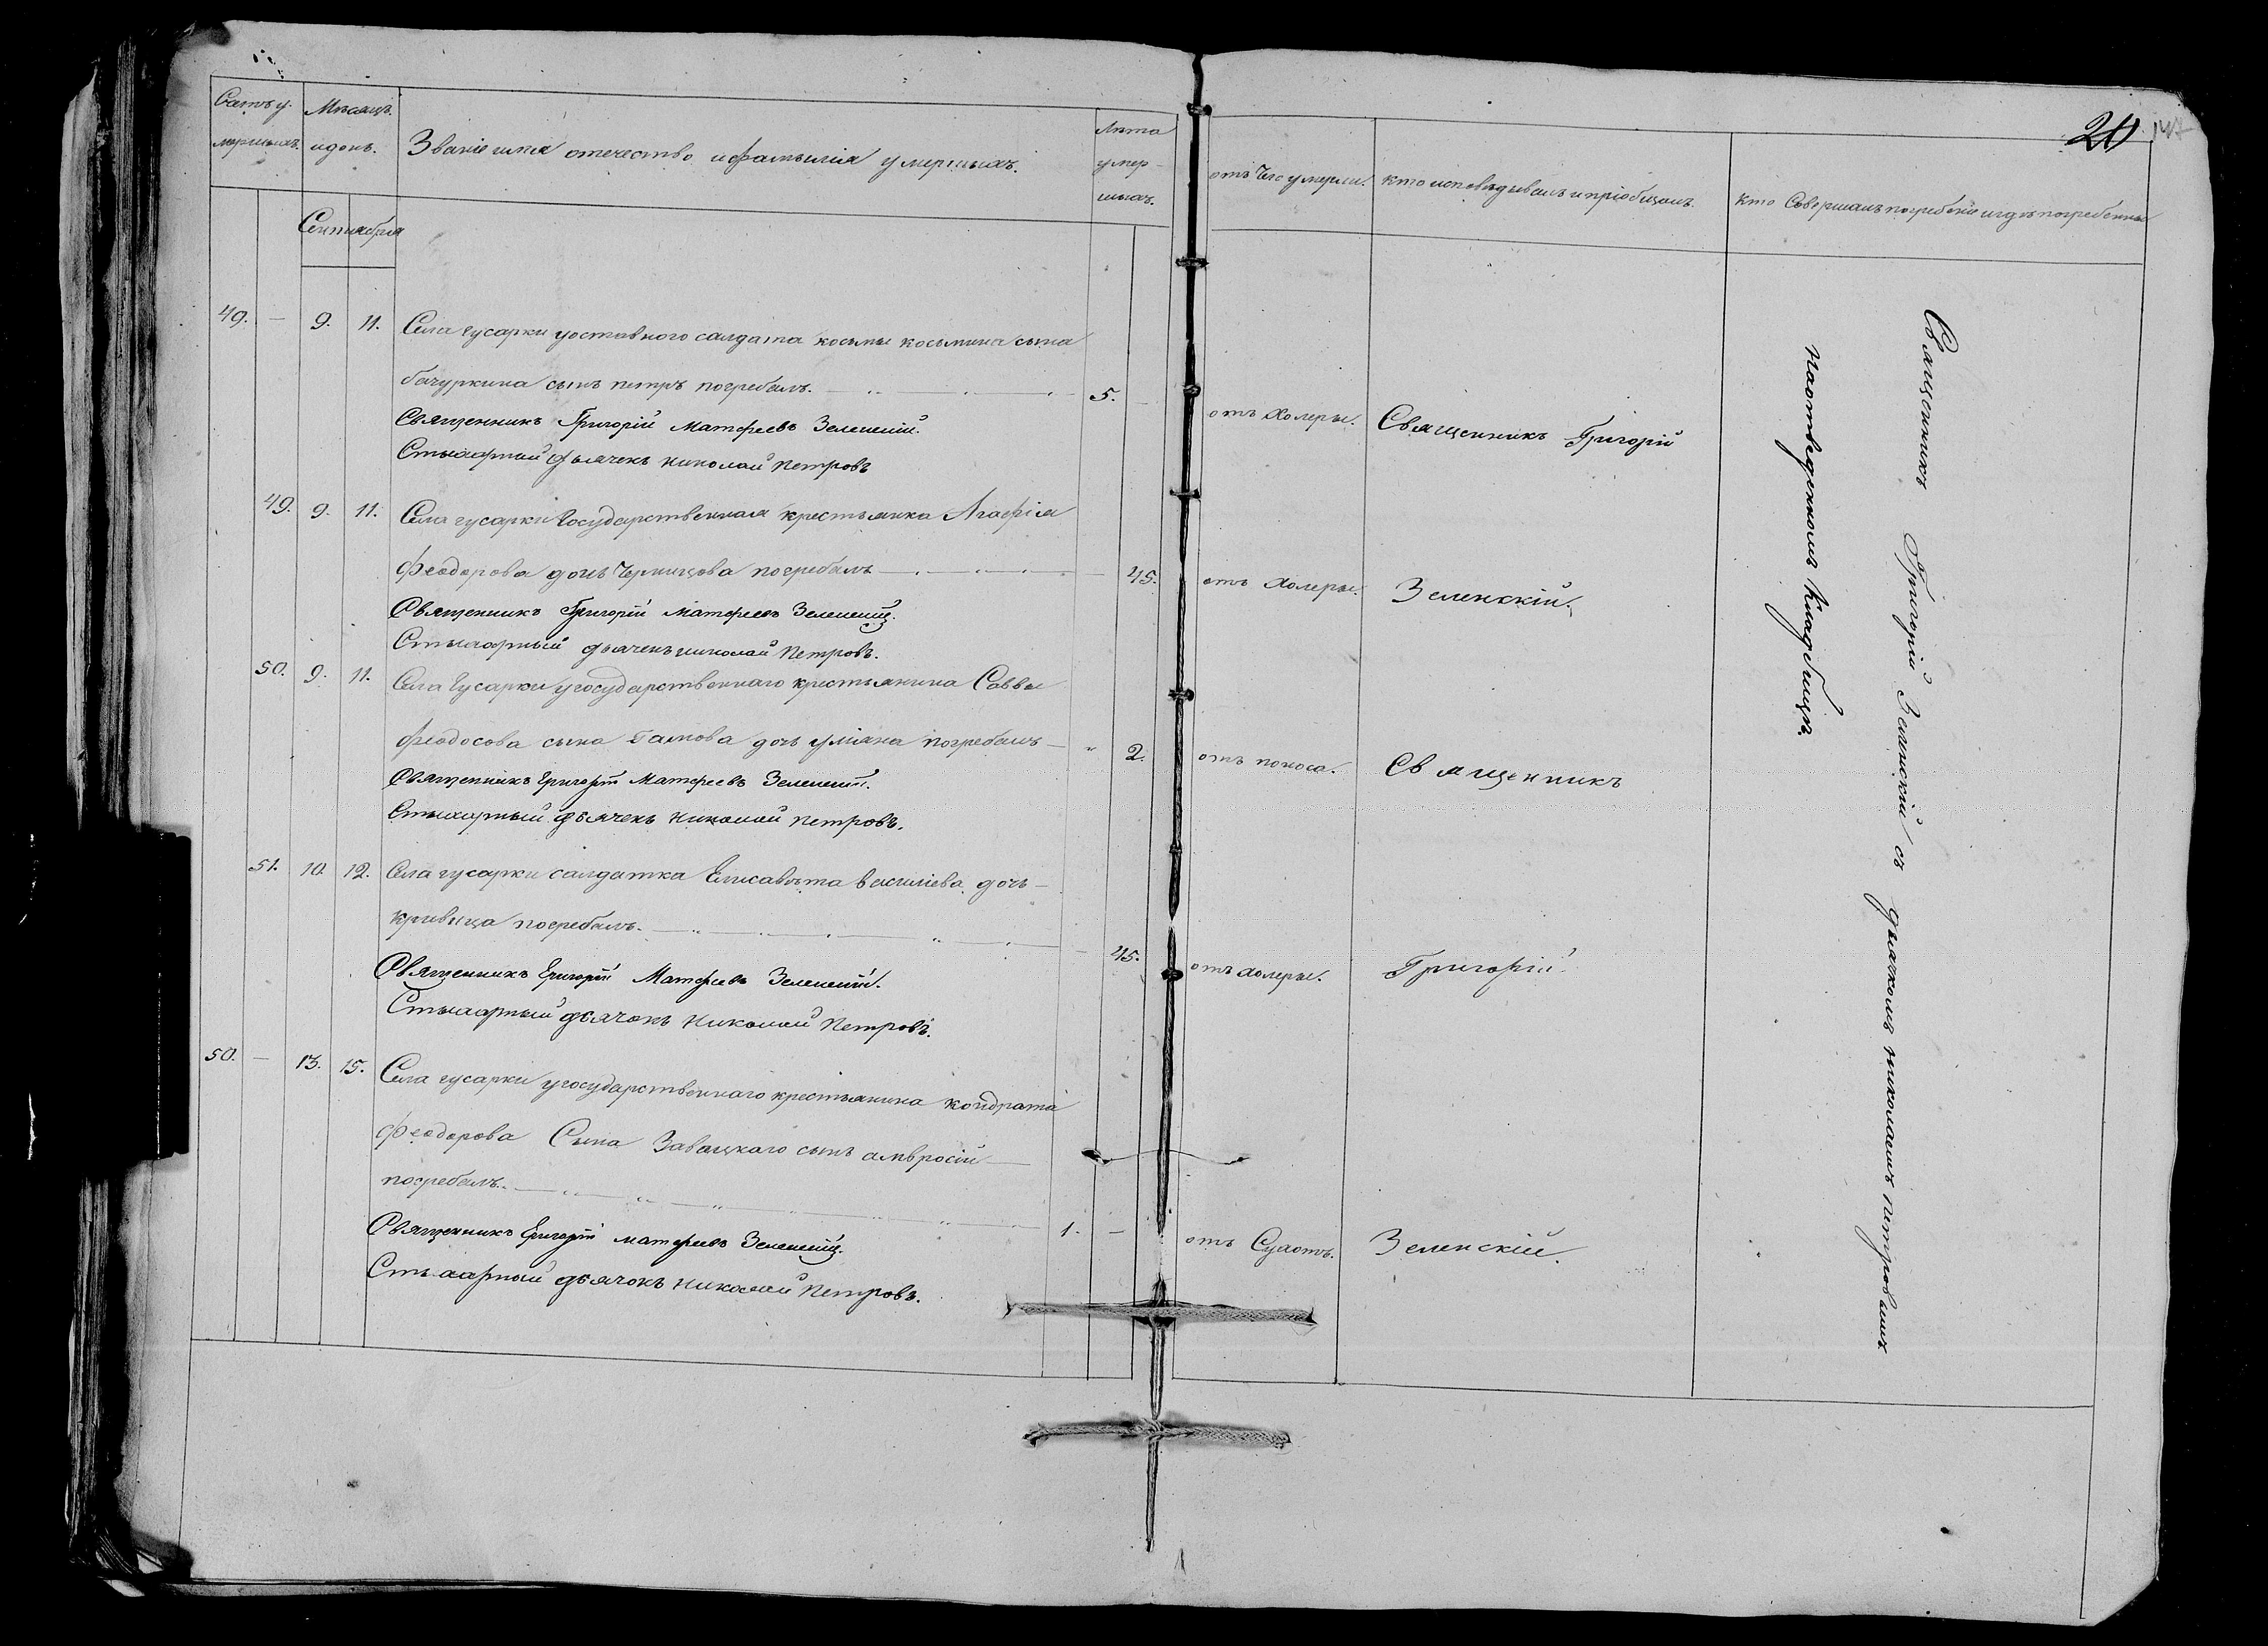 20
Счетъ у-
мершихъ.
Мѣсяцъ.
и день.
Званіе имя отечество и фамилія умершихъ.
Лѣта
умер-
шихъ.
отъ чего умерли.
кто исповѣдывалъ и пріобщалъ.
кто Совершалъ погребеніе и гдѣ погребенны
Сентября
49. — 9. 11. Села гусарки уоставного салдата косьмы косьмина сына
бачуркина сынъ петръ погребалъ. 5. — отъ холеры. Священникъ Григорій
Священникъ Григорій Матфеевъ Зеленскій.
Стихарный дьячекъ николай Петровъ
49. 9. 11. Села гусарки Государственная крестьянка Агафія
феодорова дочь Черницова погребалъ — 45. отъ холеры. Зеленскій.
Священникъ Григорій Матфеевъ Зеленскій.
Стихарный дьячекъ николай Петровъ.
50. 9. 11. Села Гусарки угосударственнаго крестьянина Саввы
феодосова сына Гамова дочь уліяна погребалъ — 2. отъ поноса. Священникъ
Священникъ Григорій Матфеевъ Зеленскій.
Стихарный дьячекъ Николай Петровъ.
51. 10. 12. Села гусарки салдатка Елисавѣта василіева дочь —
кривица погребалъ. — 45. отъ холеры. Григорій
Священникъ Григорій Матфеевъ Зеленскій.
Стихарный дьячокъ Николай Петровъ.
50. — 13. 15. Села гусарки угосударственнаго крестьянина кондрата
феодорова Сына Завацкаго сынъ амвросій —
погребалъ. 1. — отъ Сухотъ. Зеленскій.
Священникъ Григорій матфеевъ Зеленскій.
Стихарный дьячокъ Николай Петровъ.
Священникъ Григорій Зеленскій съ дьячкомъ николаемъ петровымъ
наотведенномъ Кладбищѣ.